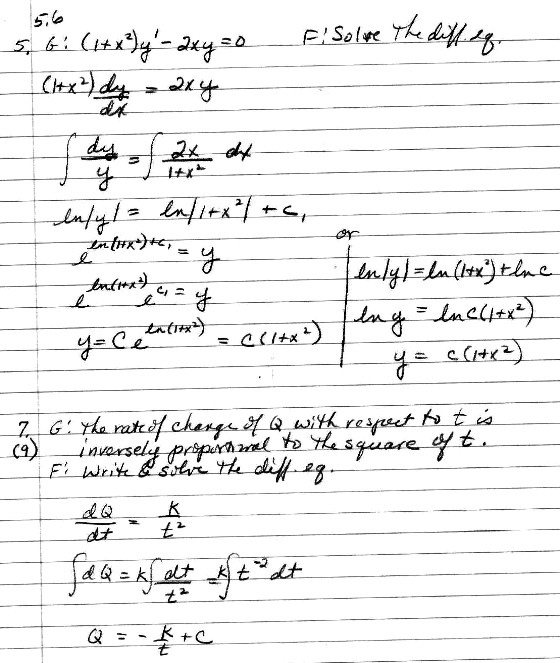 5.6
5. G: (1+x²)y' - 2xy = 0 F: Solve The diff. eq.
(1+x²) dy/dx = 2xy
∫ dy/y = ∫ 2x/1+x² dx
ln|y| = ln|1+x²| + c₁
e^ln(1+x²)+c₁ = y
e^ln(1+x²) e^c₁ = y
y = Ce^ln(1+x²) = c(1+x²)
or
ln|y| = ln(1+x²) + ln c
ln y = ln c(1+x²)
y = c(1+x²)
7. G: The rate of change of Q with respect to t is
(9) inversely proportional to the square of t.
F: Write & solve the diff. eq.
dQ/dt = k/t²
∫dQ = k∫ dt/t² = k∫ t⁻² dt
Q = - k/t + C